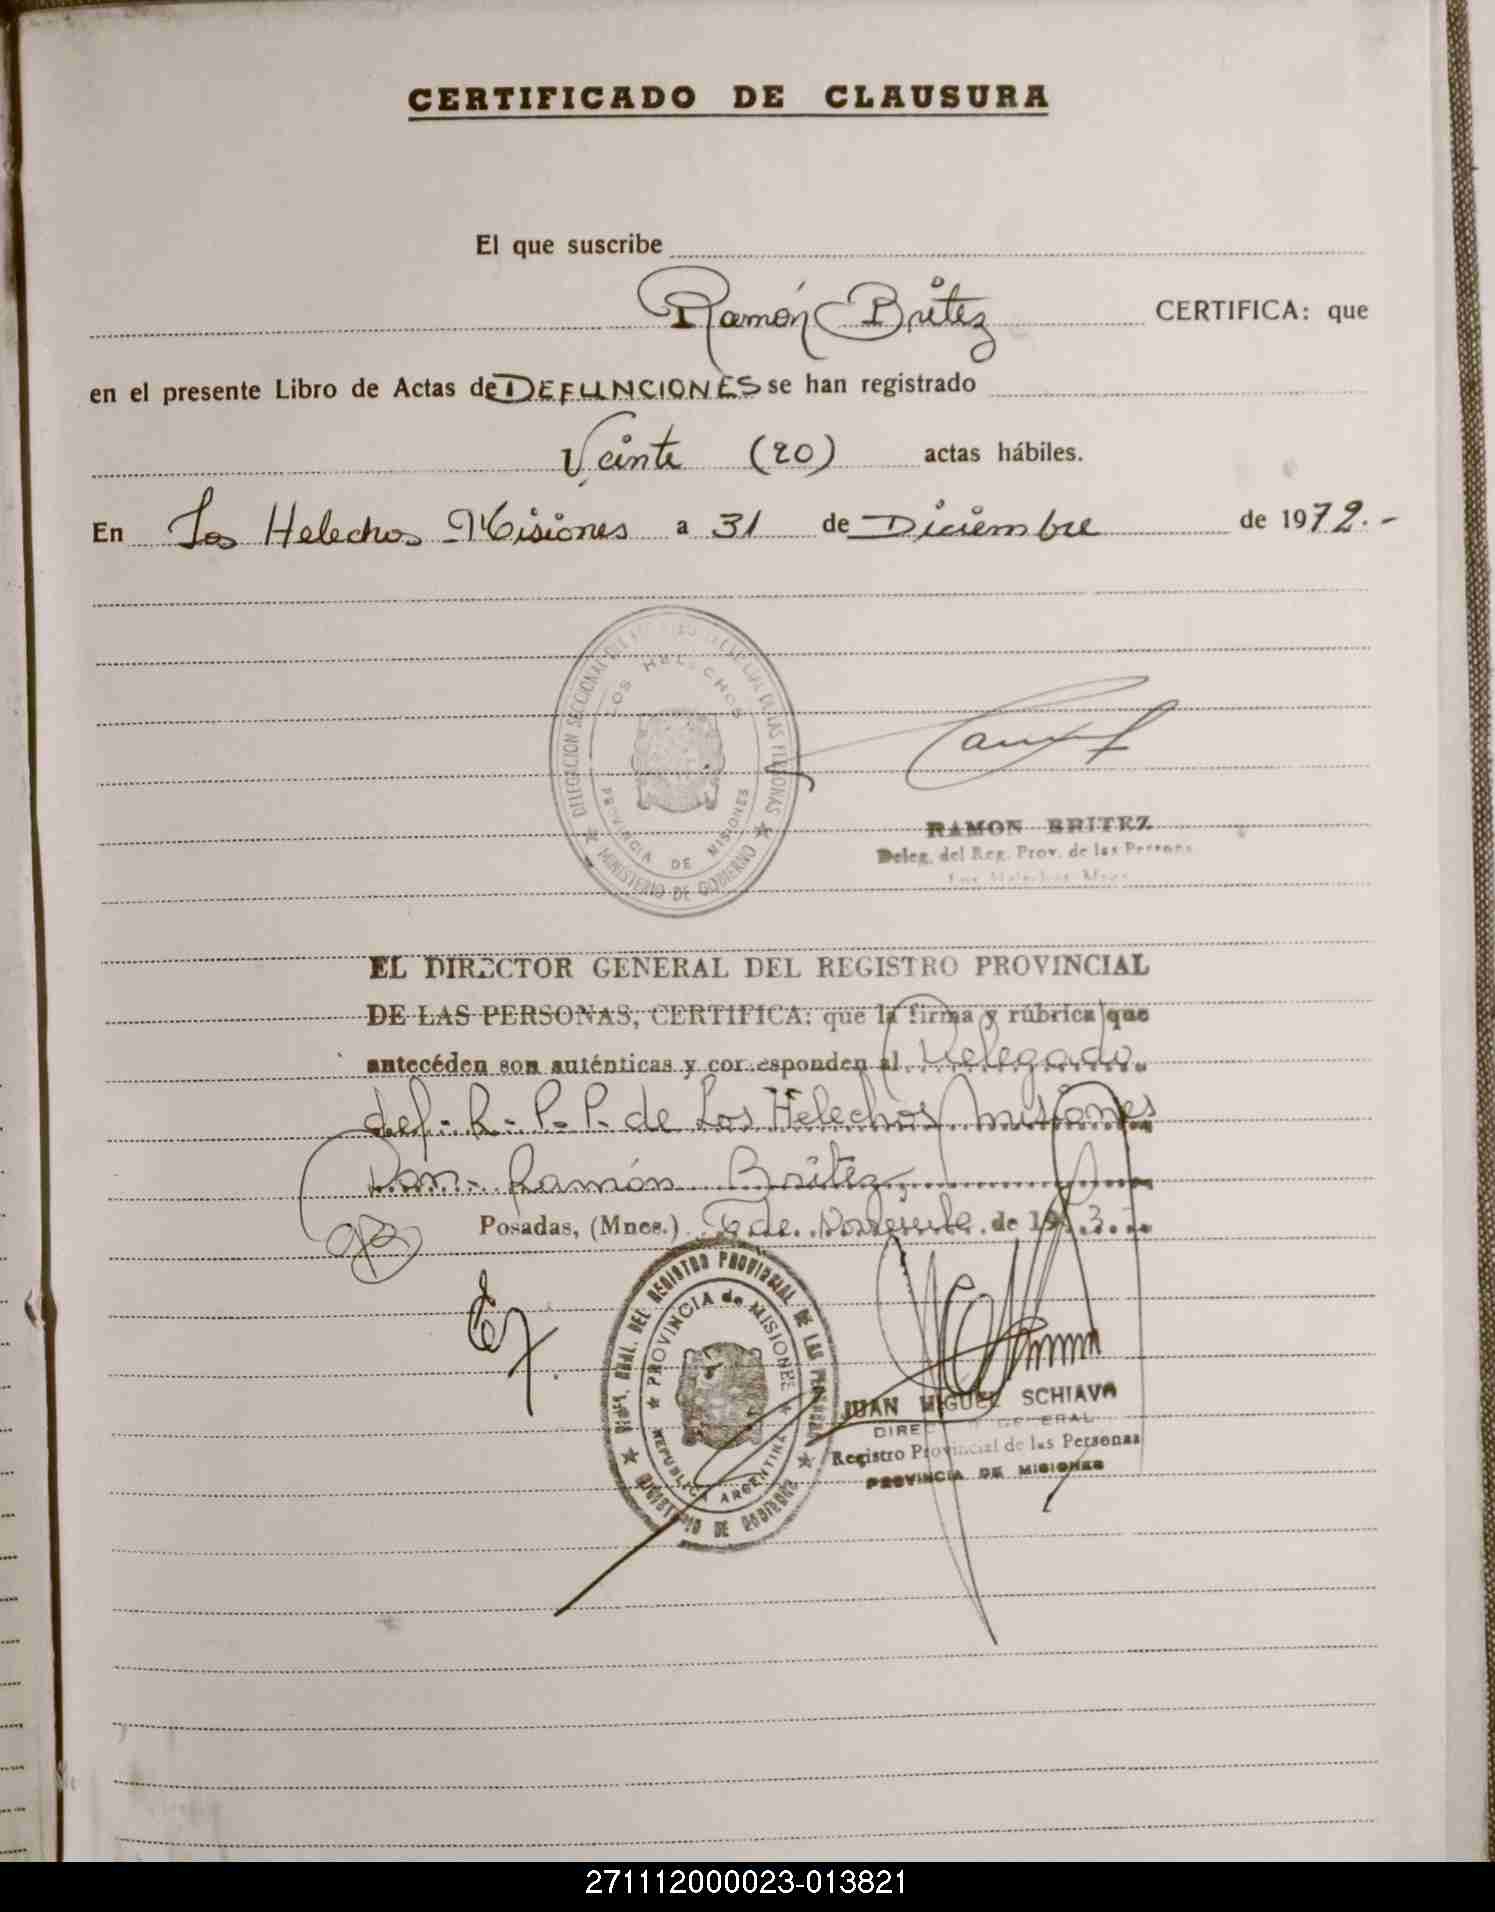 CERTIFICADO DE CLAUSURA
El que suscribe
Ramón Britez CERTIFICA: que
en el presente Libro de Actas de DEFUNCIONES se han registrado
Veinte (20) actas hábiles.
En Los Helechos Misiones a 31 de Diciembre de 1972.-
DELEGACION SECCIONAL DEL REGISTRO PROVINCIAL DE LAS PERSONAS
LOS HELECHOS
PROVINCIA DE MISIONES
MINISTERIO DE GOBIERNO
RAMON BRITEZ
Deleg. del Reg. Prov. de las Persons
Los Helechos Mnes
EL DIRECTOR GENERAL DEL REGISTRO PROVINCIAL
DE LAS PERSONAS, CERTIFICA: que la firma y rúbrica que
antecéden son auténticas y corresponden al Delegado
del R. P. P. de Los Helechos Misiones
Don Ramón Britez,
Posadas, (Mnes.) 6 de de 19 3
GRAL. DEL REGISTRO PROVINCIAL DE LAS PERSONAS
PROVINCIA de MISIONES
REPUBLICA ARGENTINA
MINISTERIO DE GOBIERNO
JUAN MIGUEL SCHIAVO
DIRECTOR GENERAL
Registro Provincial de las Personas
PROVINCIA DE MISIONES
271112000023-013821